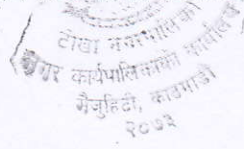 टोखा नगरपालिका
नगर कार्यपालिकाको कार्यालय
मैजुहिटी, काठमाडौं
२०७३